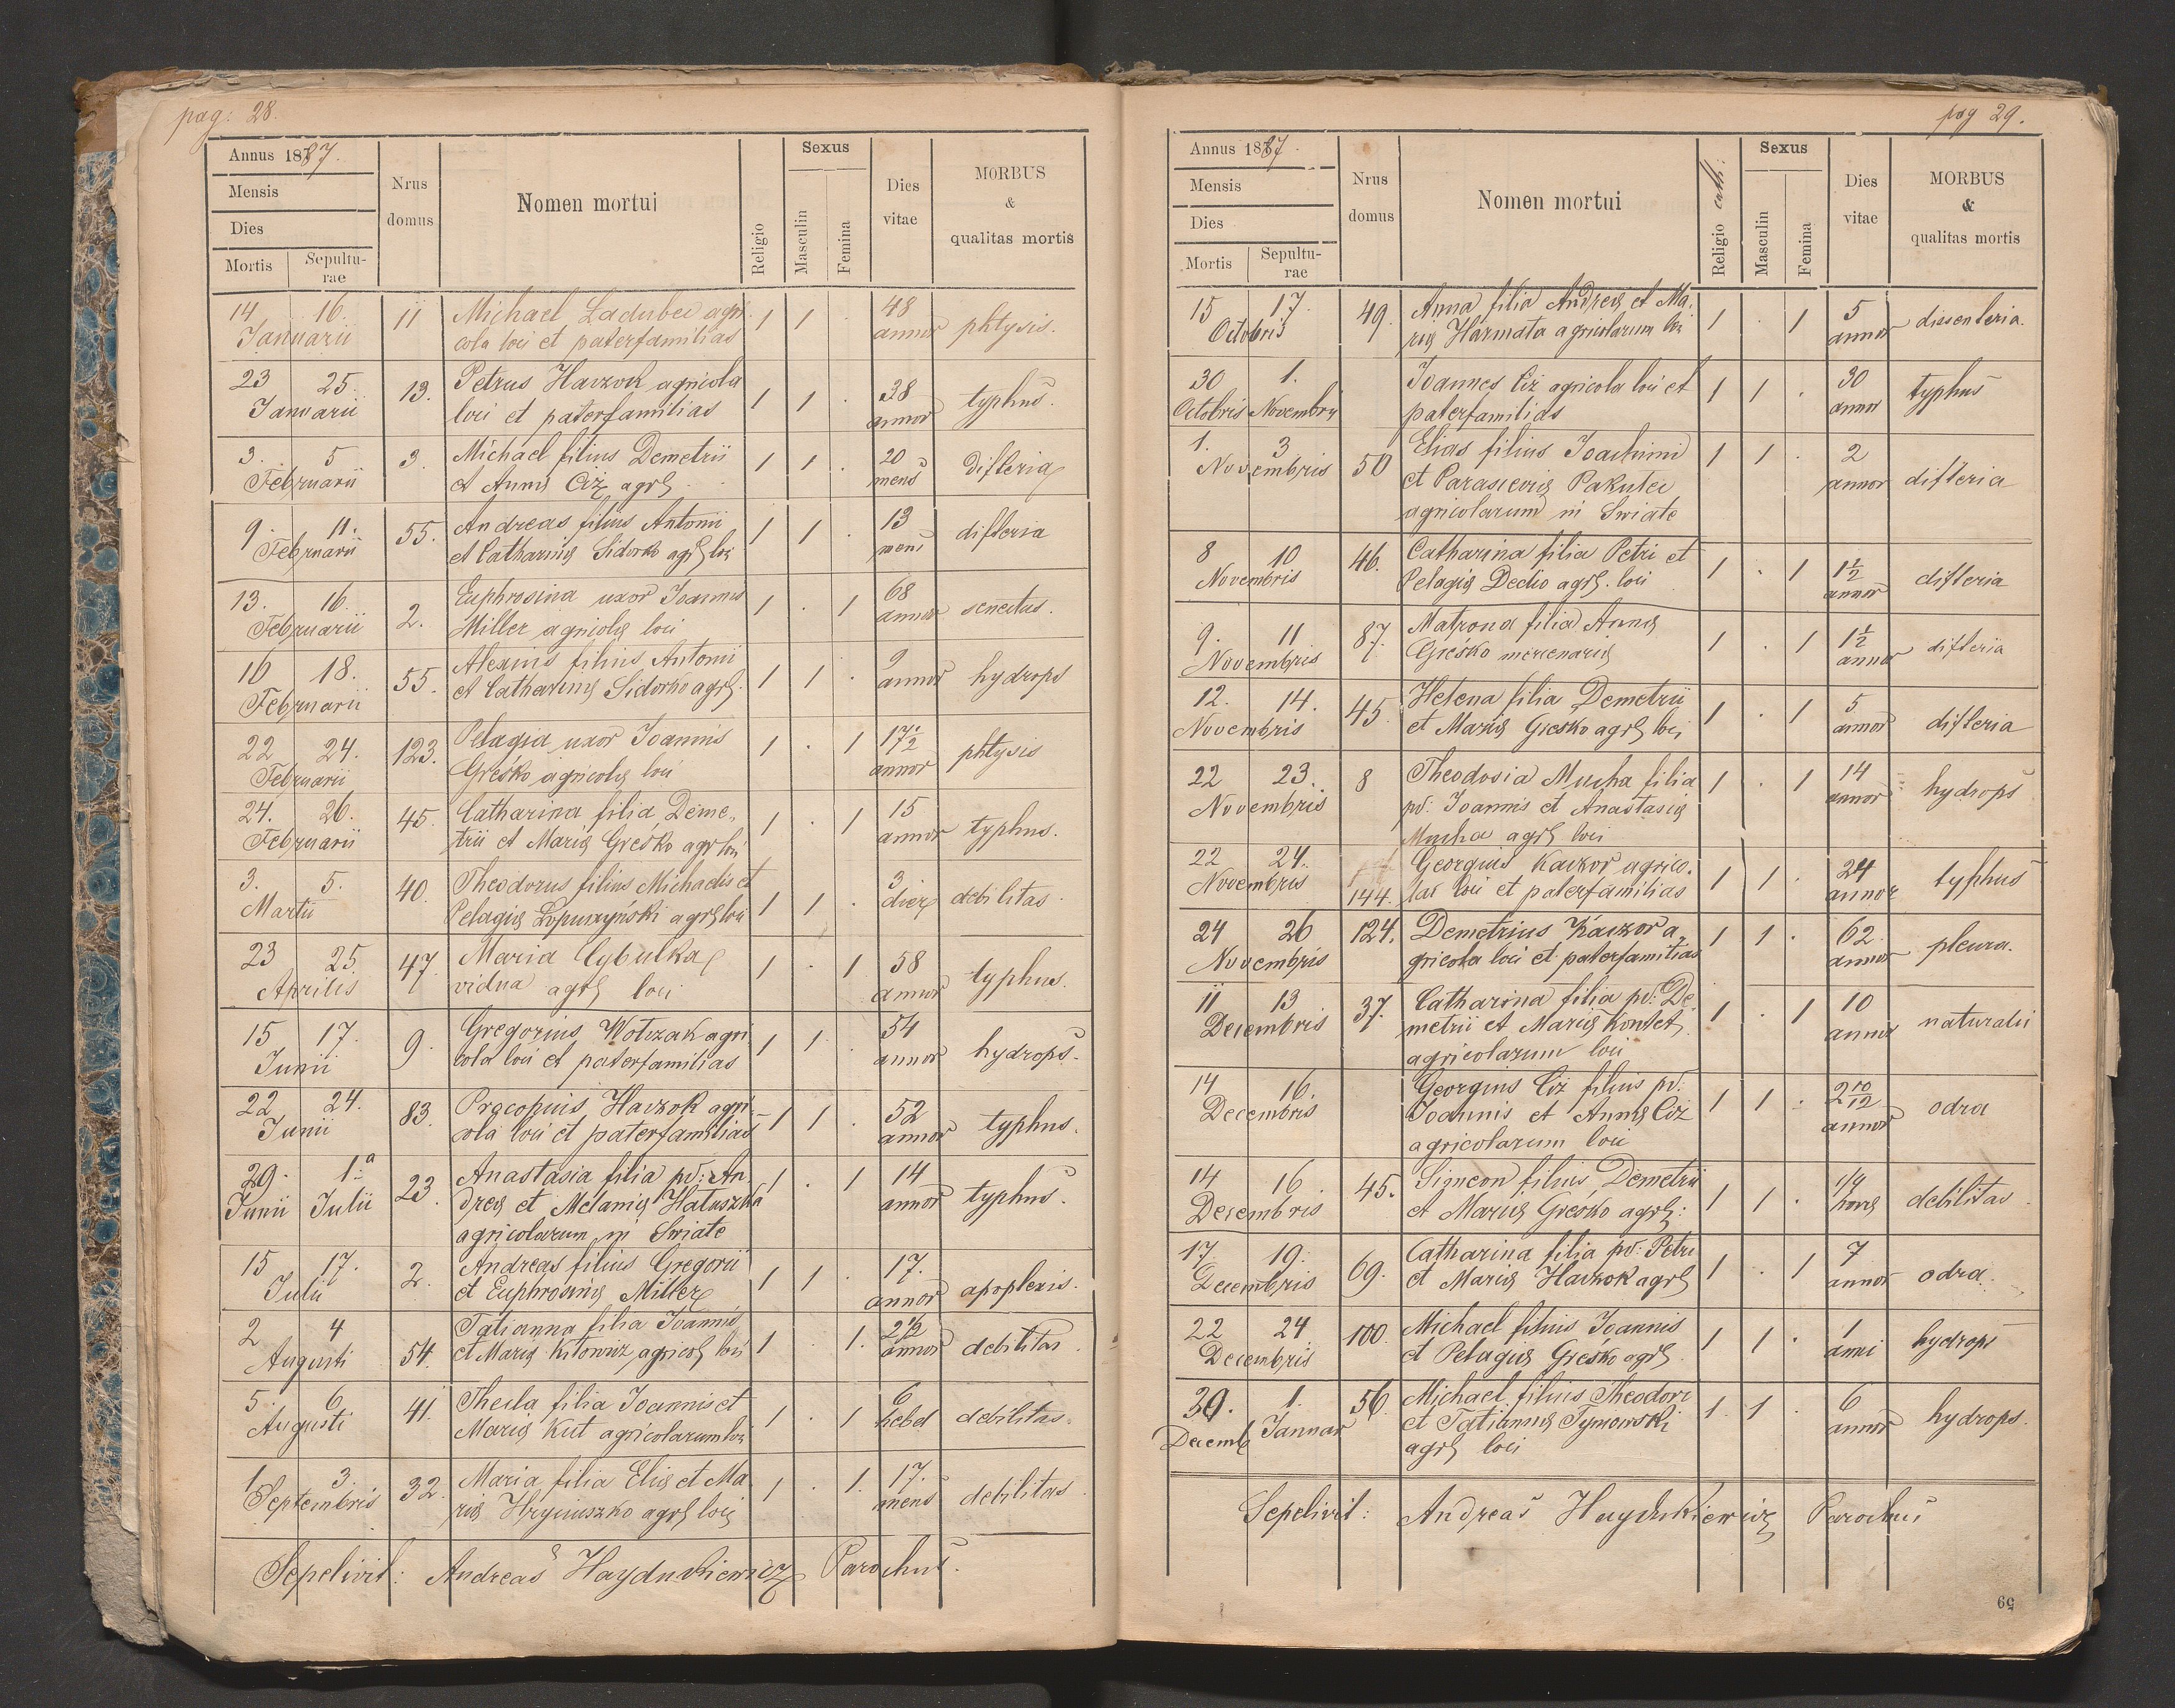 pag: 28.
Annus 1887.
Mensis
Dies
Mortis Sepultu-
rae
Nrus
domus
Nomen mortui
Religio
Sexus
Masculin
Femina
Dies
vitae
MORBUS
&
qualitas mortis
14 16. 11 Michael Ladubec agri- 1 1 . 48 phtysis.
Januarii cola loci et paterfamilias annor
23 25. 13. Petrus Havzok agricola 1 1 . 38 typhus.
Januarii loci et paterfamilias annor
3. 5 3. Michael filius Demetrii 1 1 . 20 difteria
Februarii et Annæ Ciż agrł mens
9. 11. 55. Andreas filius Antonii 1 1 . 13 difteria
Februarii et Catharinæ Sidorko agrł loci mens
13. 16. 2. Euphrosina uxor Joannis 1 . 1 68 senectus.
Februarii Miller agricolæ loci annor
16 18. 55. Alexius filius Antonii 1 1 . 9 hydrops
Februarii et Catharinæ Sidorko agrł. annor
22 24. 123. Pelagia uxor Joannis 1 . 1 17½ phtysis
Februarii Greśko agricolæ loci annor
24. 26. 45. Catharina filia Deme- 1 . 1 15 typhus.
Februarii trii et Mariæ Greśko agr loci annor
3. 5. 40. Theodorus filius Michaelis et 1 1 . 3 debilitas.
Martii Pelagiæ Łopuszyński agrł loci dier
23 25. 47. Maria Cybulka 1 . 1 58 typhus.
Aprilis vidua agrł loci annor
15 17. 9. Gregorius Wołczak agri- 1 1 . 54 hydrops.
Junii cola loci et paterfamilias annor
22 24. 83. Procopius Havzok agri- 1 1 . 52 typhus.
Junii cola loci et paterfamilias annor
29. 1.a 23. Anastasia filia pd: An- 1 . 1 14 typhus.
Junii Julii dreæ et Melaniæ Hałuszka annor
agricolarum in Swiate
15 17. 2. Andreas filius Gregorii 1 1 . 17. apoplexis.
Julii et Euphrosinæ Miller annor
2 4 54. Tatianna filia Joannis 1 . 1. 2½ debilitas.
Augusti et Mariæ Kitowicz agricoł loci annor
5. 6 41. Thecla filia Joannis et 1 . 1 6 debilitas.
Augusti Mariæ Kut agricolarum loci hebd
1 3. 32. Maria filia Eliæ et Ma- 1 . 1. 17. debilitas.
Septembris riæ Hryciuszko agrł loci mens
Sepelivit: Andreas Haydukiewicz Parochus.
pag 29.
Annus 1887.
Mensis
Dies
Mortis Sepultu-
rae
Nrus
domus
Nomen mortui
Religio cath:
Sexus
Masculin
Femina
Dies
vitae
MORBUS
&
qualitas mortis
15 17. 49. Anna filia Andreæ et Ma- 1 . 1 5 dissenteria.
Octobris riæ Harmata agricolarum loci annor
30 1. Joannes Ciż agricola loci et 1 1 . 30 typhus
Octobris Novembris paterfamilias annor
1. 3 50 Elias filius Joachimi 1 1 . 2
Novembris et Parasceviæ Pakutec annor difteria
agricolarum in Swiate
8 10 46. Catharina filia Petri et 1 . 1 1½ difteria
Novembris Pelagiæ Dedio agrł. loci annor
9. 11 87. Matrona filia Annæ 1 . 1 1½ difteria
Novembris Greśko mercenariæ annor
12. 14. 45. Helena filia Demetrii 1 . 1 5 difteria
Novembris et Mariæ Gresko agrł loci annor
22 23. 8 Theodosia Mucha filia 1 . 1 14 hydrops
Novembris pd: Joannis et Anastasiæ annor
Mucha agrł loci
22 24. Georgius Kaczor agrico- 1 1 . 24 typhus
Novembris 144. lae loci et paterfamilias annor
24 26 124. Demetrius Kaczor a- 1 1 . 62. pleura.
Novembris gricola loci et paterfamilias annor
11 13 37. Catharina filia pd: De- 1 . 1 10 naturalii
Decembris metrii et Mariæ Kontet annor
agricolarum loci
14 16. Georgius Ciż filius pd: 1 1 . 2 10/12 odra
Decembris Joannis et Annæ Ciż annor
agricolarum loci
14 16 45. Simeon filius Demetrii 1 1 . 1/4 debilitas.
Decembris et Mariæ Gresko agrł: horæ
17. 19. 69. Catharina filia pd: Petri 1 . 1 7 odra.
Decembris et Mariæ Havzok agrł annor
22 24 100. Michael filius Joannis 1 1 . 1 hydrops
Decembris et Pelagiæ Greśko agrł. anni
30. 1. 56. Michael filius Theodori 1. 1 . 6 hydrops.
Decemb Januar et Tatiannæ Tymowski annor
agrł loci
Sepelivit: Andreas Haydukiewicz Parochus